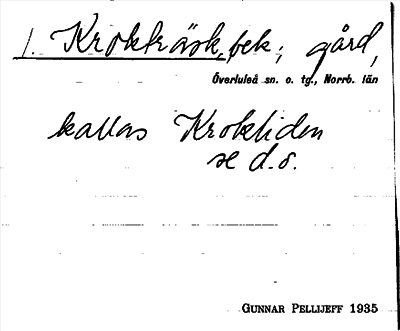 1. Krokträsk, bek; gård,
Överluleå sn. o. tg., Norrb. län
kallas Krokliden
se d.o.
GUNNAR PELLIJEFF 1935